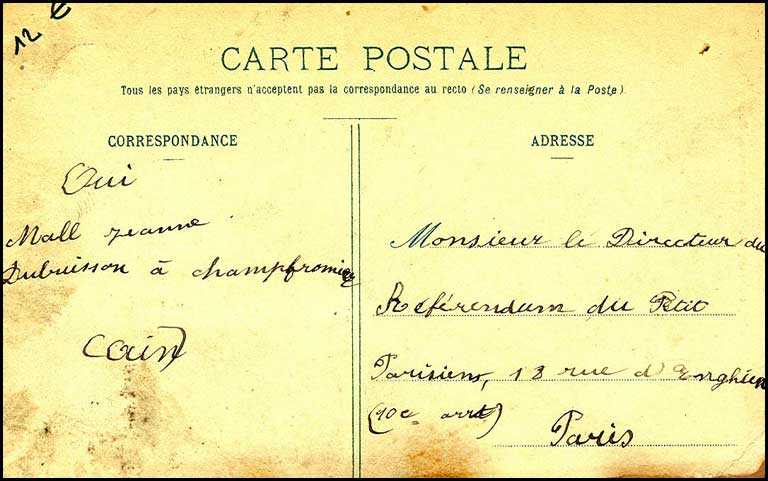 12
CARTE POSTALE
Tous les pays étrangers n'acceptent pas la correspondance au recto (Se renseigner à la Poste).
CORRESPONDANCE
Oui
Mall jeanne
Dubuisson à champfromier
(ain)
ADRESSE
Monsieur le Directeur du
Référendum du Petit
Parisien, 18 rue d'Enghien
(10e arrt)
Paris